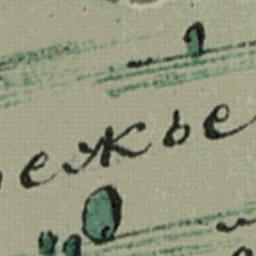 ежье